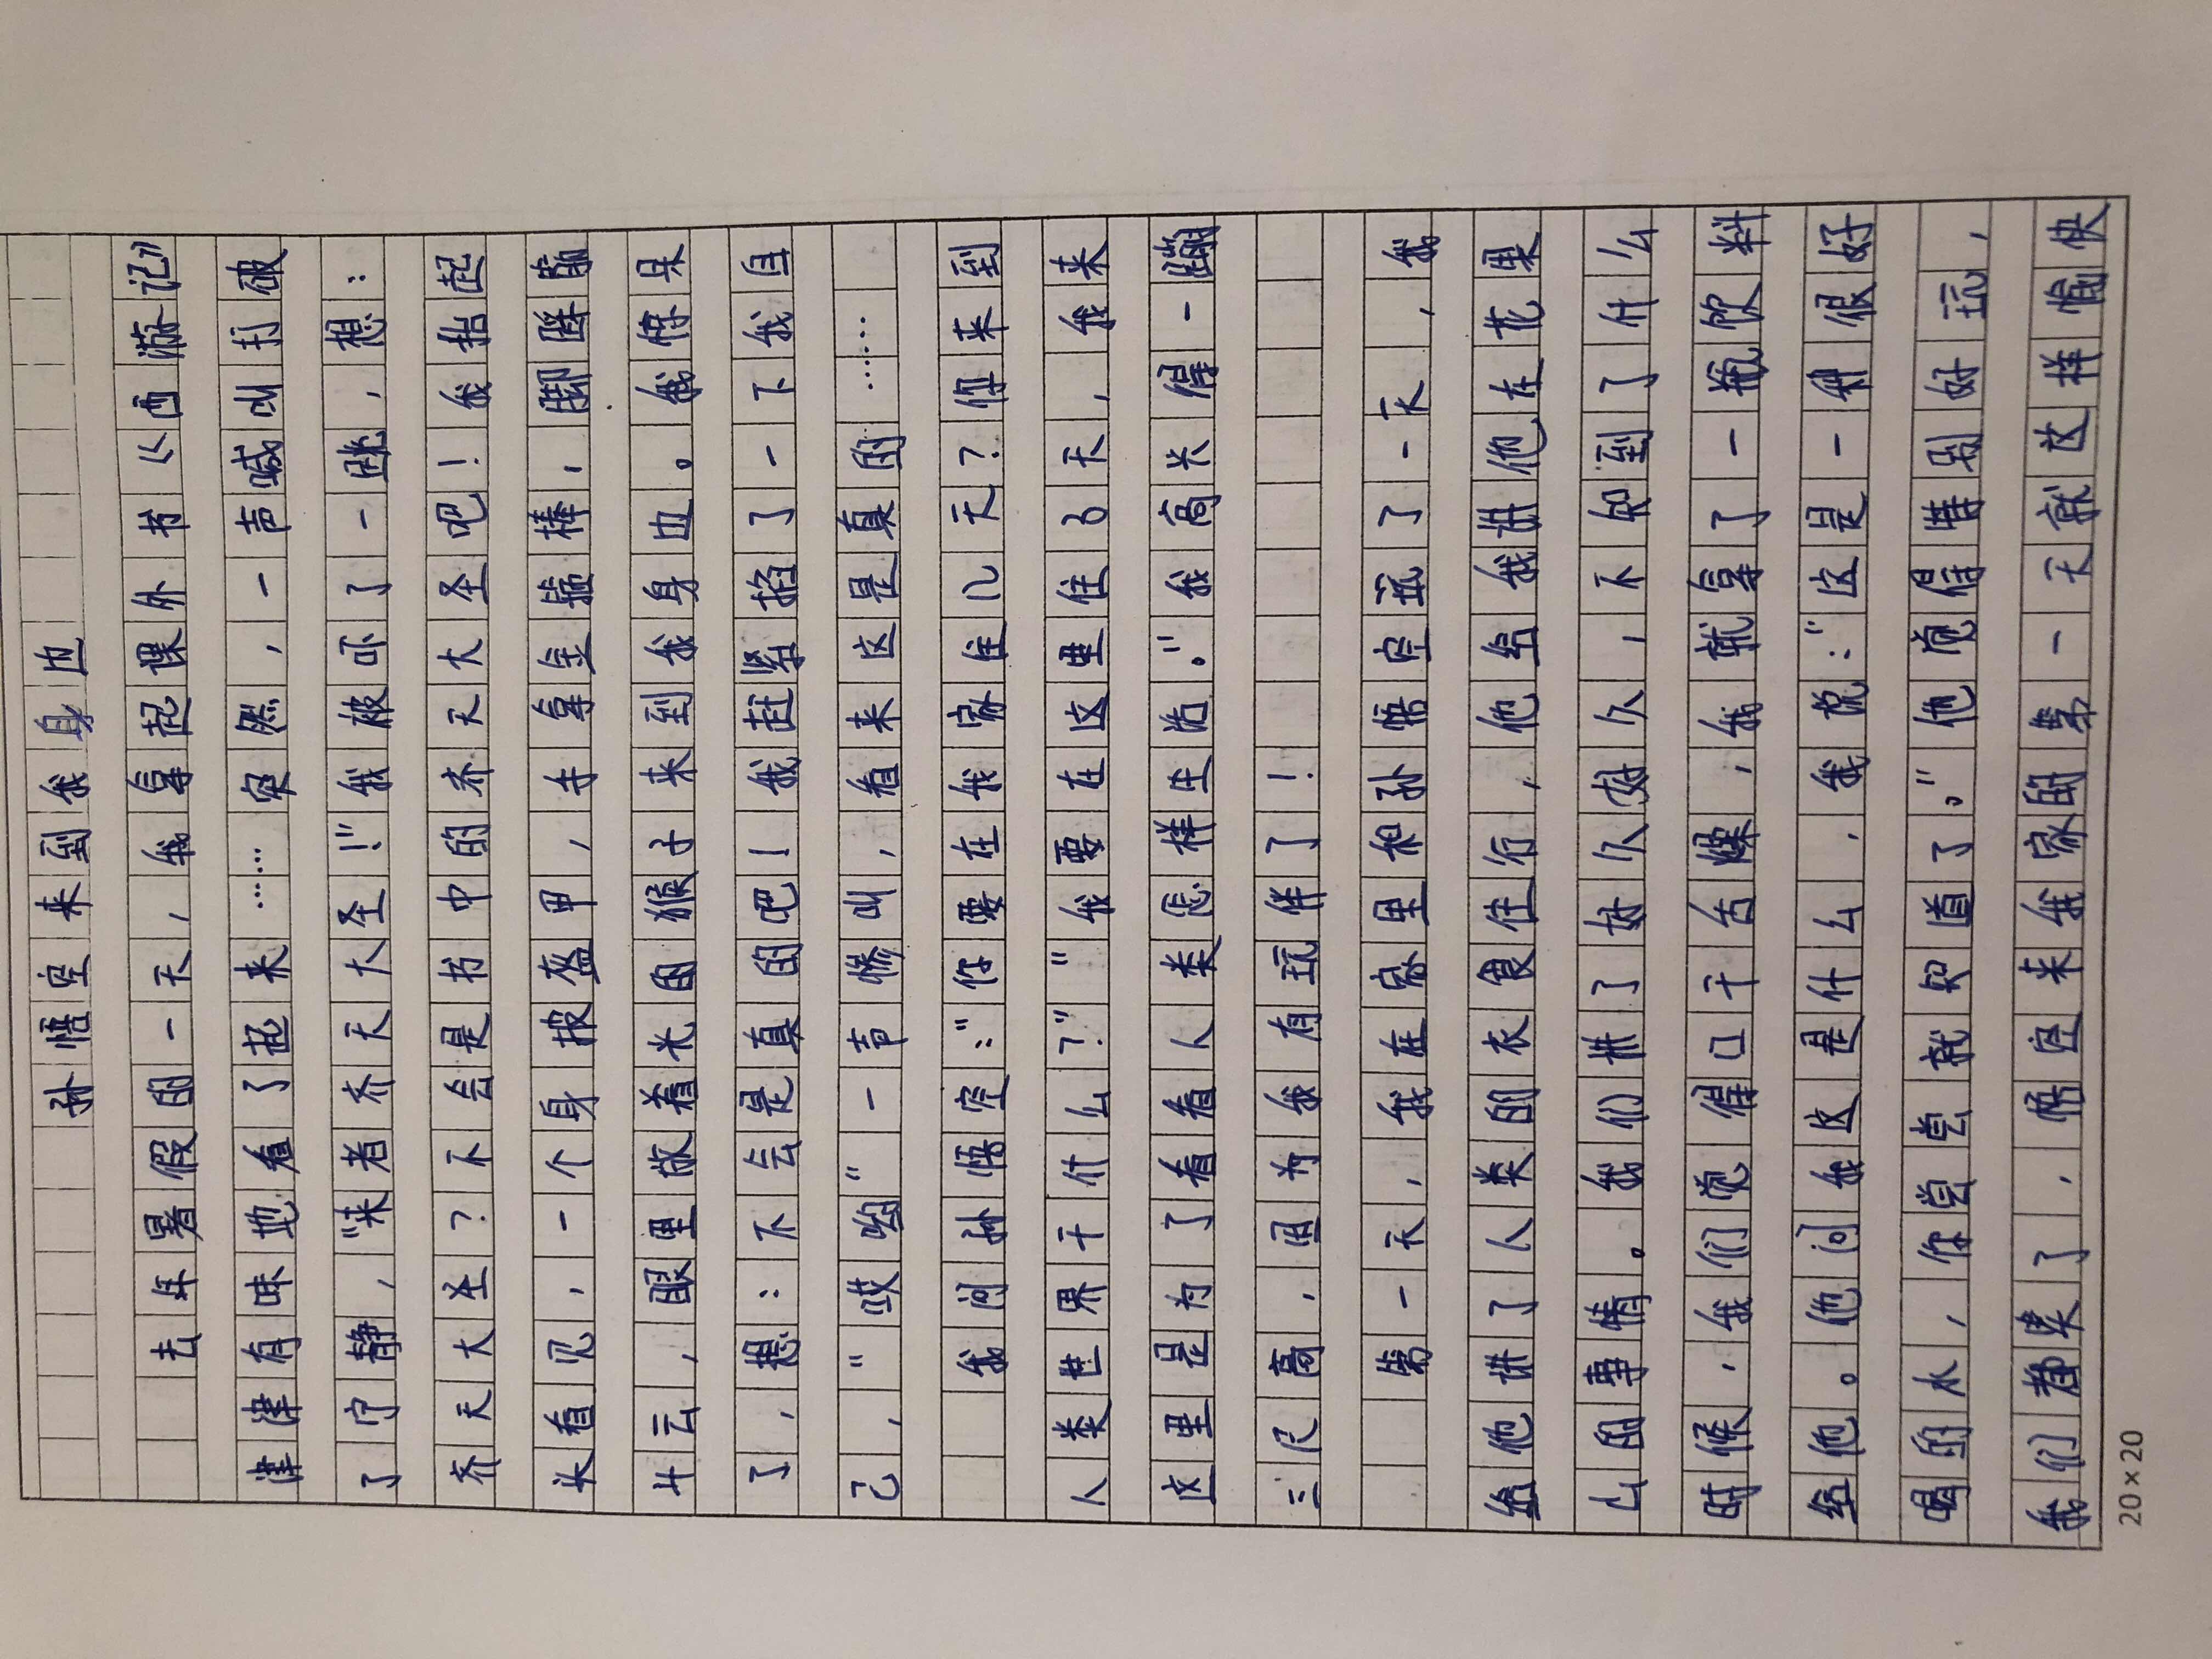 孙悟空来到我身边
去年暑假的一天，我拿起课外书《西游记》
津津有味地看了起来……突然，一声喊叫打破
了宁静，“来者齐天大圣！”我被吓了一跳，想：
齐天大圣？不会是书中的齐天大圣吧！我抬起
头看见，一个身披盔甲，手拿金箍棒，脚踩筋
斗云，眼里放着光的猴子来到我身边。我惊呆
了，想：不会是真的吧！我赶紧掐了一下我自
己，“哎哟”一声惨叫，看来这是真的……
我问孙悟空：“你要在我家住几天？你来到
人类世界干什么？”“我要在这里住3天，我来
这里是为了看看人类怎样生活。”我高兴得一蹦
三尺高，因为我有玩伴了！
第一天，我在家里和孙悟空玩了一天，我
给他讲了人类的衣食住行，他给我讲他在花果
山的事情。我们讲了好久好久，不知到了什么
时候，我们觉得口干舌燥，我就拿了一瓶饮料
给他。他问我这是什么，我说：“这是一种很好
喝的水，你尝尝就知道了。”他觉得特别好玩，
我们都笑了，悟空来我家的第一天就这样愉快
20×20